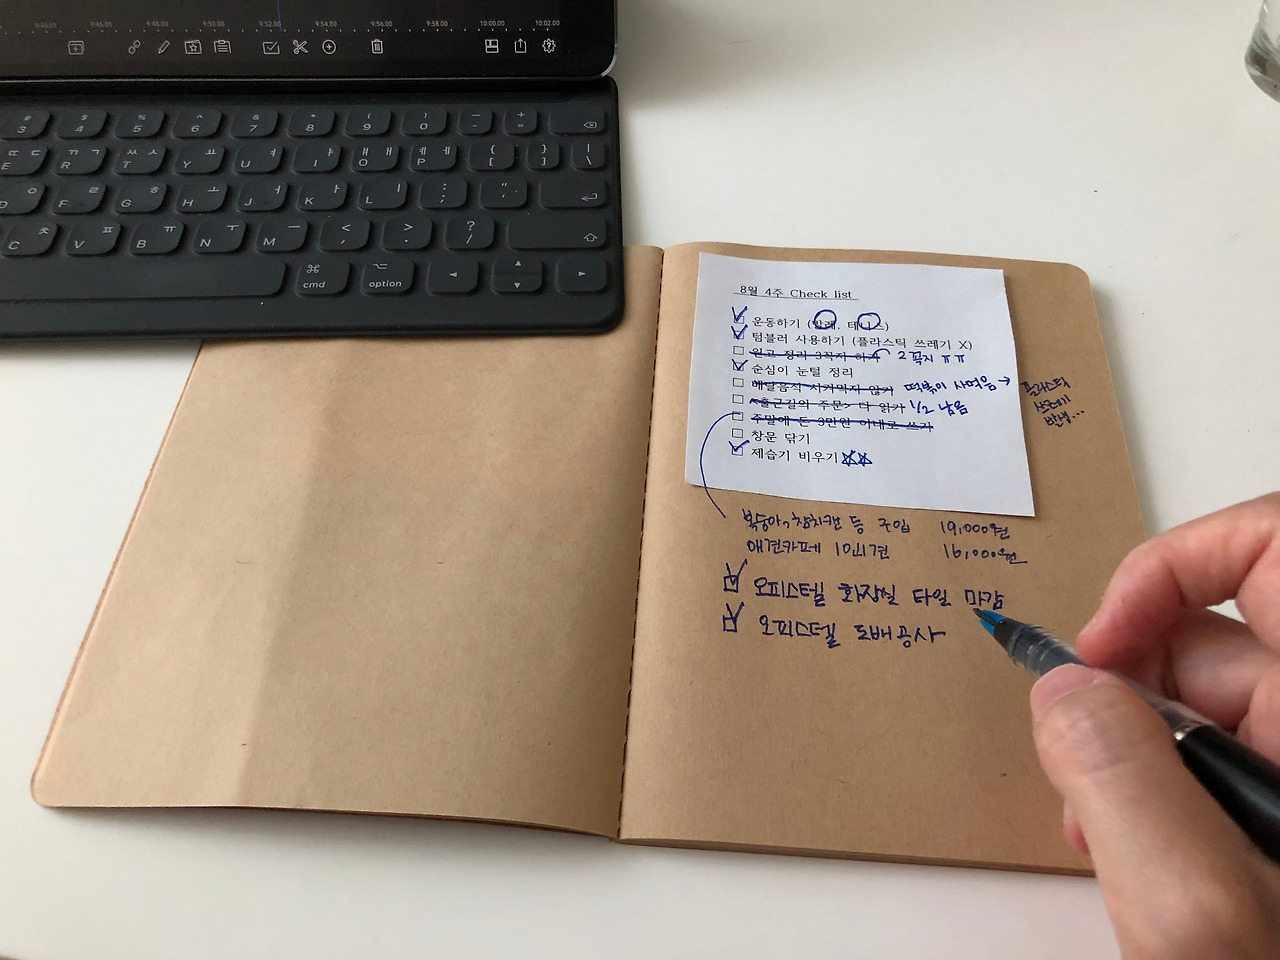 9:46.00 9:48.00 9:50.00 9:52.00 9:54.00 9:56.00 9:58.00 10:00.00 10:02.00
# 3 $ 4 % 5 ^ 6 & 7 * 8 ( 9 ) 0 _ - + =
E ㄸ ㄷ R ㄲ ㄱ T ㅆ ㅅ Y ㅛ U ㅕ I ㅑ O ㅒ ㅐ P ㅖ ㅔ { [ } ] | \
D ㅇ F ㄹ G ㅎ H ㅗ J ㅓ K ㅏ L ㅣ : ; " '
C ㅊ V ㅍ B ㅠ N ㅜ M ㅡ < , > . ? /
cmd option
8월 4주 Check list
운동하기 (발레, 테니스)
텀블러 사용하기 (플라스틱 쓰레기 X)
원고 정리 3꼭지 하기 2꼭지 ㅠㅠ
순심이 눈털 정리
배달음식 시켜먹지 않기 떡볶이 사먹음 → 플라스틱 쓰레기 발생...
<출근길의 주문> 다 읽기 1/2 남음
주말에 돈 3만원 이내로 쓰기
창문 닦기
제습기 비우기
복숭아, 참치캔 등 구입 19,000원
애견카페 16,000원
오피스텔 화장실 타일 마감
오피스텔 도배공사